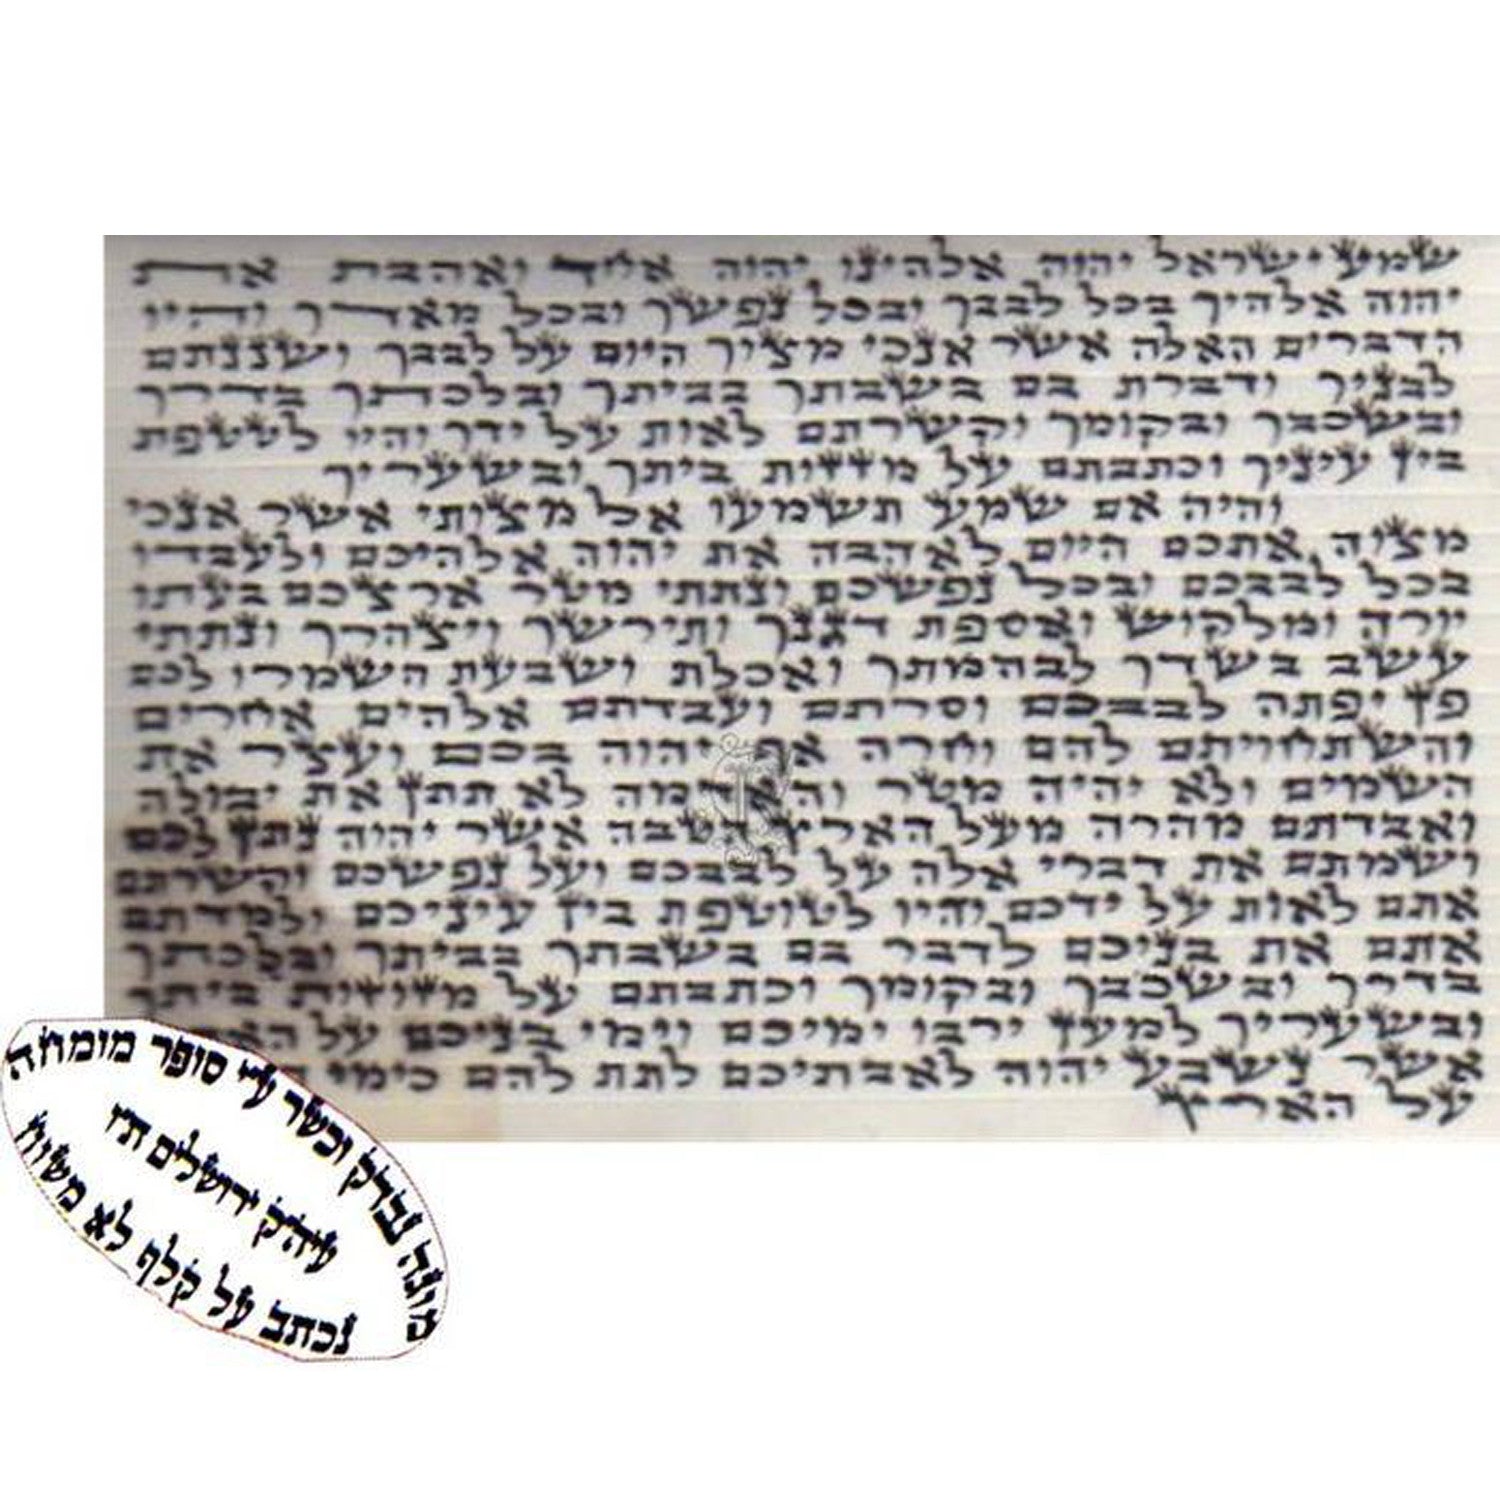 שמע ישראל יהוה אלהינו יהוה אחד ואהבת את
יהוה אלהיך בכל לבבך ובכל נפשך ובכל מאדך והיו
הדברים האלה אשר אנכי מצוך היום על לבבך ושננתם
לבניך ודברת בם בשבתך בביתך ובלכתך בדרך
ובשכבך ובקומך וקשרתם לאות על ידך והיו לטטפת
בין עיניך וכתבתם על מזוזות ביתך ובשעריך
והיה אם שמע תשמעו אל מצותי אשר אנכי
מצוה אתכם היום לאהבה את יהוה אלהיכם ולעבדו
בכל לבבכם ובכל נפשכם ונתתי מטר ארצכם בעתו
יורה ומלקוש ואספת דגנך ותירשך ויצהרך ונתתי
עשב בשדך לבהמתך ואכלת ושבעת השמרו לכם
פן יפתה לבבכם וסרתם ועבדתם אלהים אחרים
והשתחויתם להם וחרה אף יהוה בכם ועצר את
השמים ולא יהיה מטר והאדמה לא תתן את יבולה
ואבדתם מהרה מעל הארץ הטבה אשר יהוה נתן לכם
ושמתם את דברי אלה על לבבכם ועל נפשכם וקשרתם
אתם לאות על ידכם והיו לטוטפת בין עיניכם ולמדתם
אתם את בניכם לדבר בם בשבתך בביתך ובלכתך
בדרך ובשכבך ובקומך וכתבתם על מזוזות ביתך
ובשעריך למען ירבו ימיכם וימי בניכם על
אשר נשבע יהוה לאבתיכם לתת להם כימי
על הארץ
מוגה נבדק וכשר ע״י סופר מומחה
עיה״ק ירושלים ת״ו
נכתב על קלף לא משוח